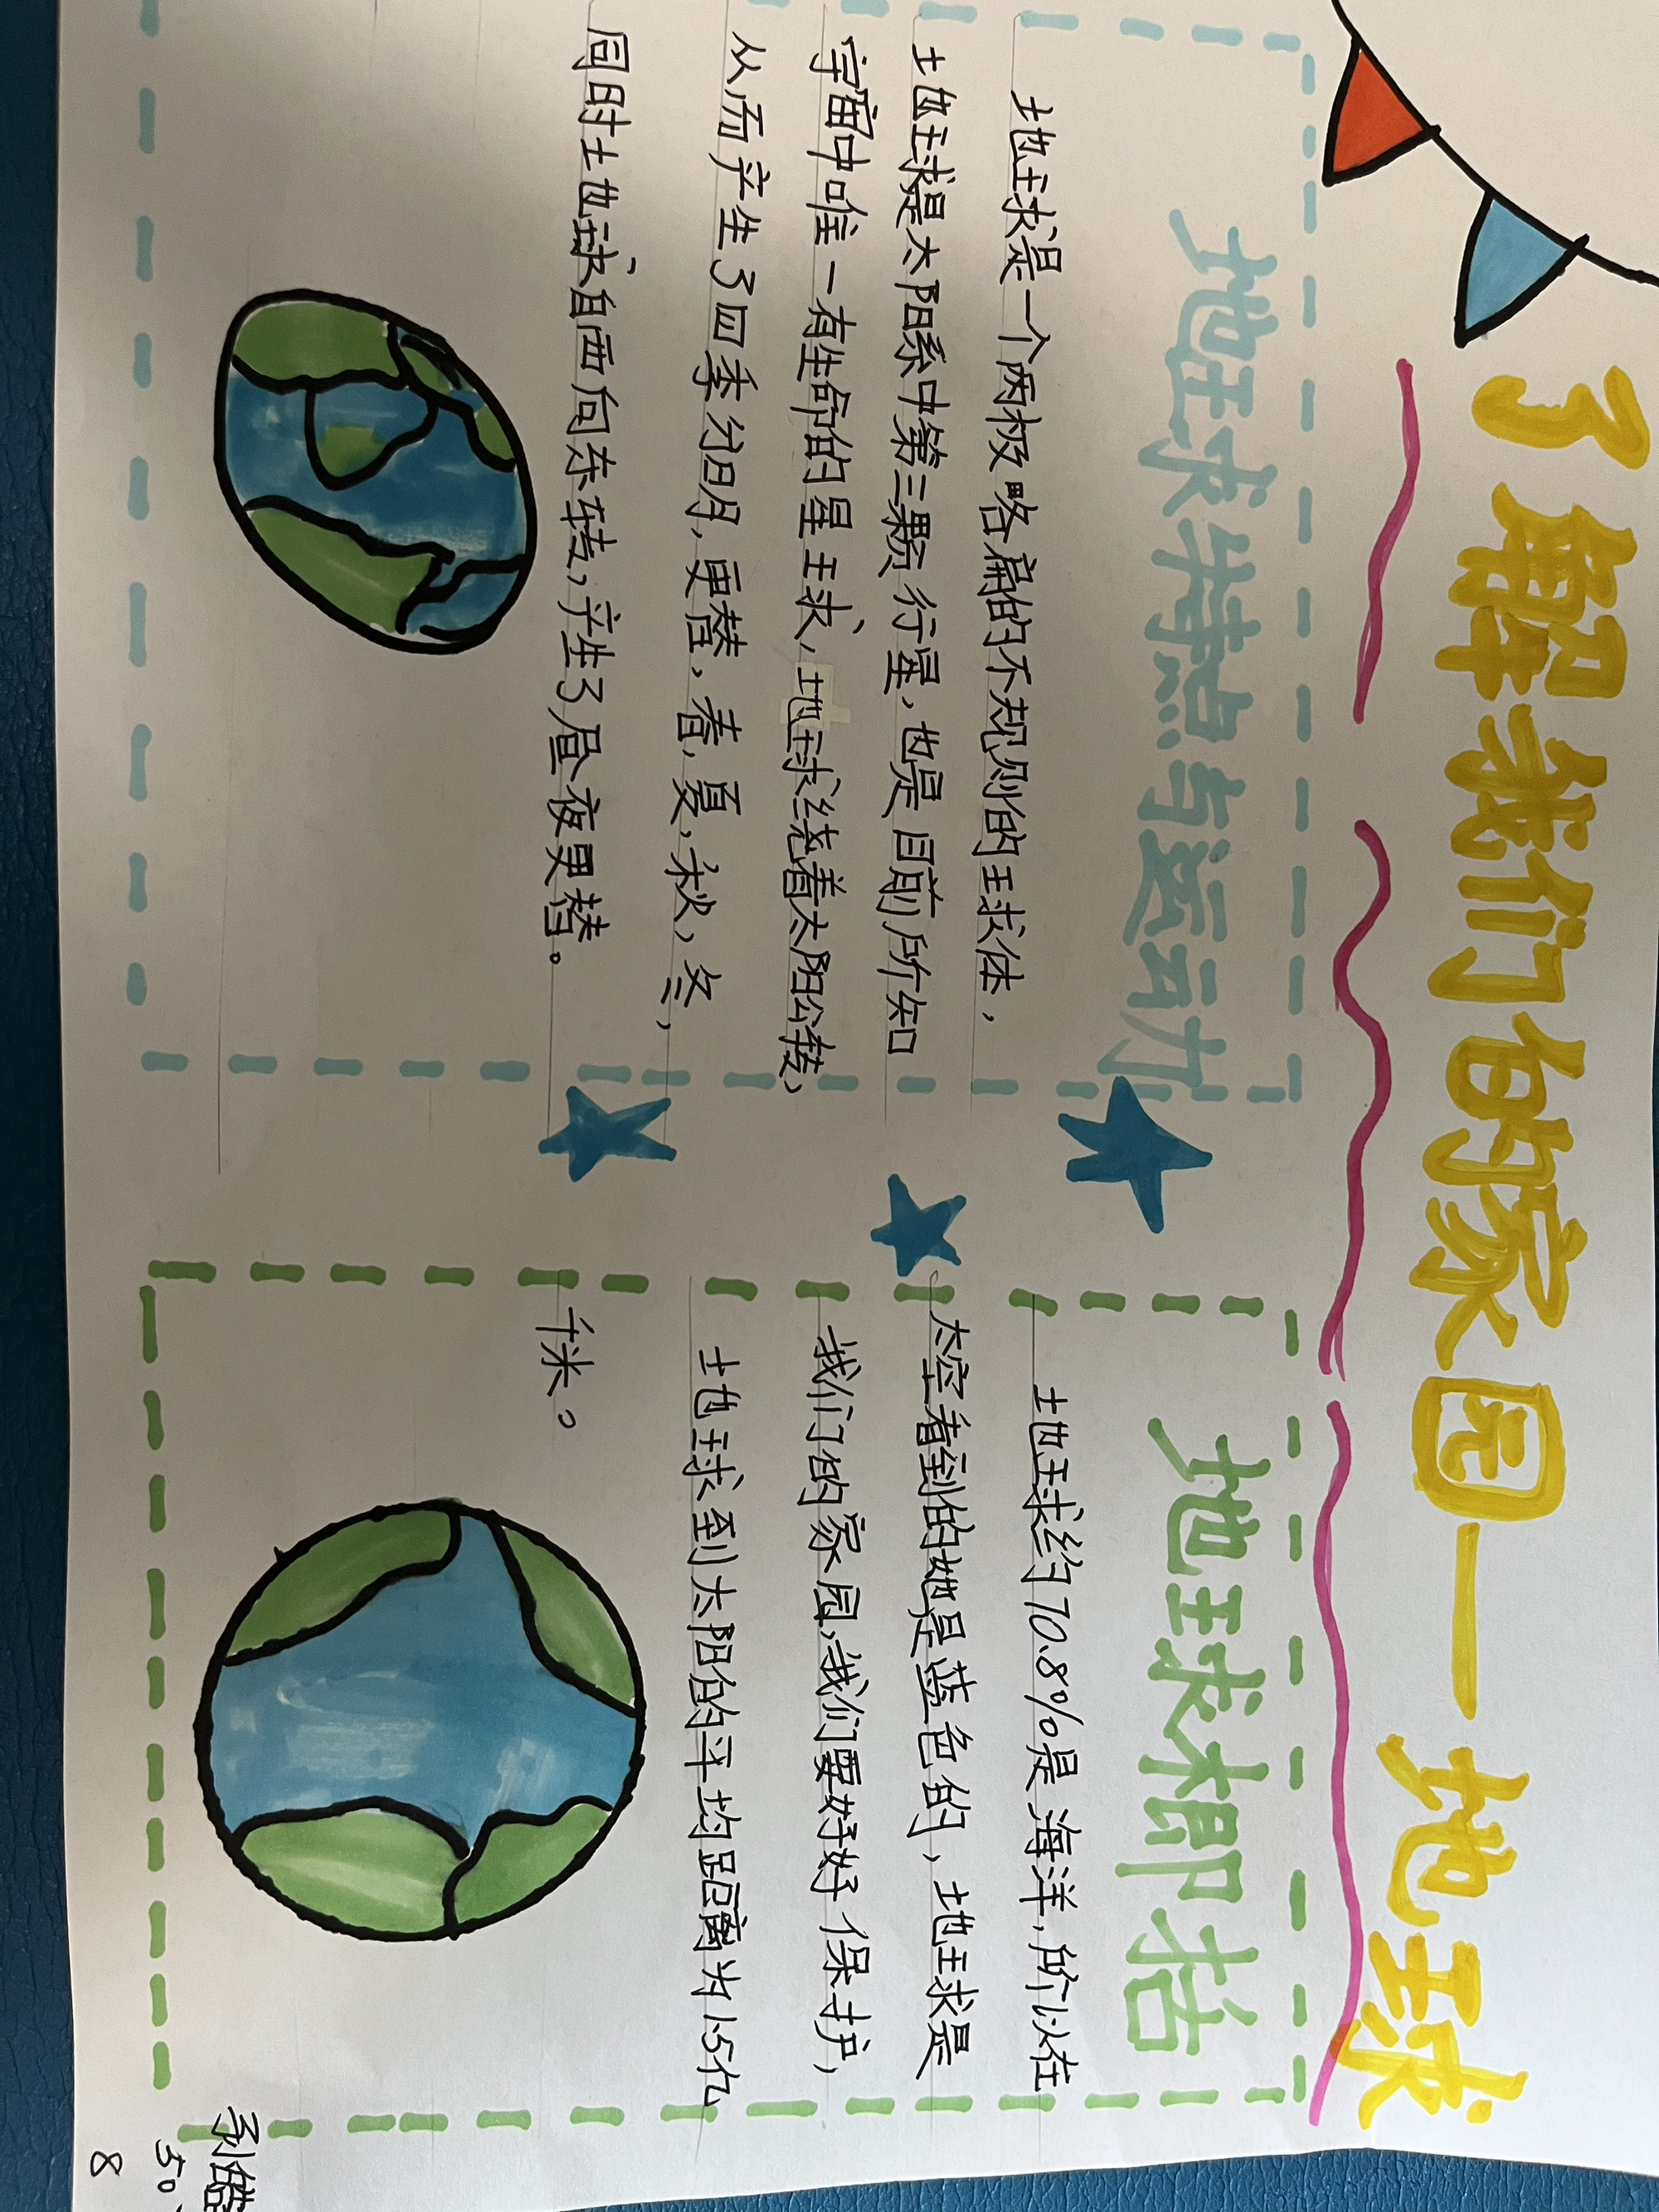 了解我们的家园——地球
地球特点与运动
地球是一个两极略扁的不规则的球体,
地球是太阳系中第三颗行星,也是目前所知
宇宙中唯一有生命的星球,地球绕着太阳公转,
从而产生了四季分明,更替,春,夏,秋,冬,
同时地球自西向东转,产生了昼夜更替。
地球概括
地球约70.8%是海洋,所以在
太空看到的她是蓝色的,地球是
我们的家园,我们要好好保护,
地球到太阳的平均距离为1.5亿
千米。
50
8